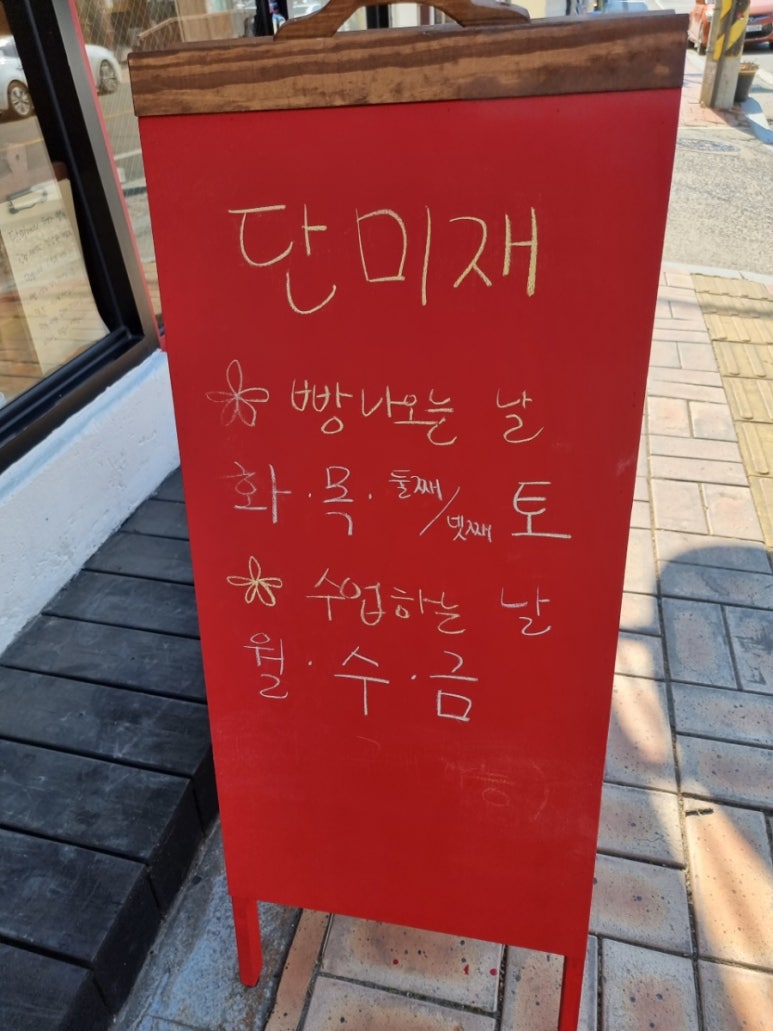 단미재
빵 나오는 날
화·목·둘째/넷째 토
수업하는 날
월·수·금